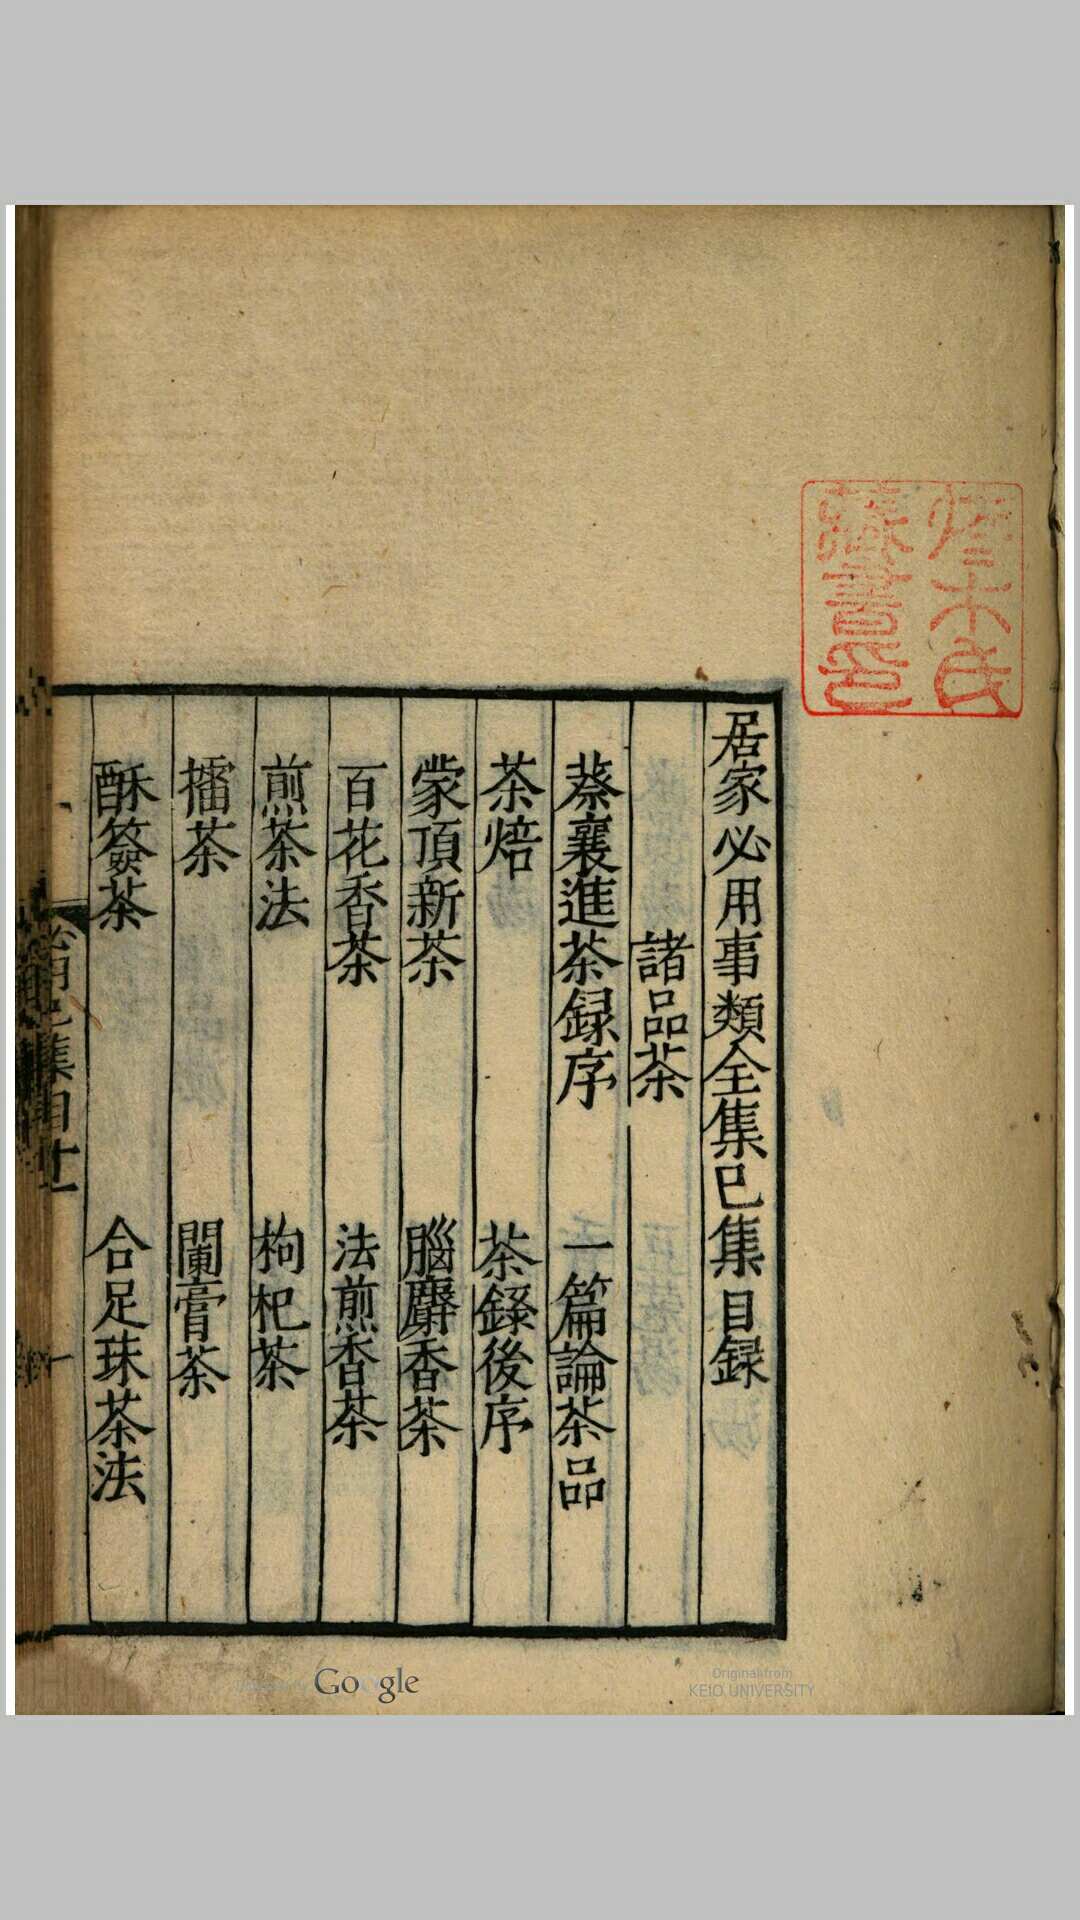 居家必用事類全集已集目録
諸品茶
蔡襄進茶録序 一篇論茶品
茶焙 茶録後序
蒙頂新茶 腦麝香茶
百花香茶 法煎香茶
煎茶法 枸杞茶
擂茶 闌膏茶
酥簽茶 合足珠茶法
藏書印
Google
Original from
KEIO UNIVERSITY